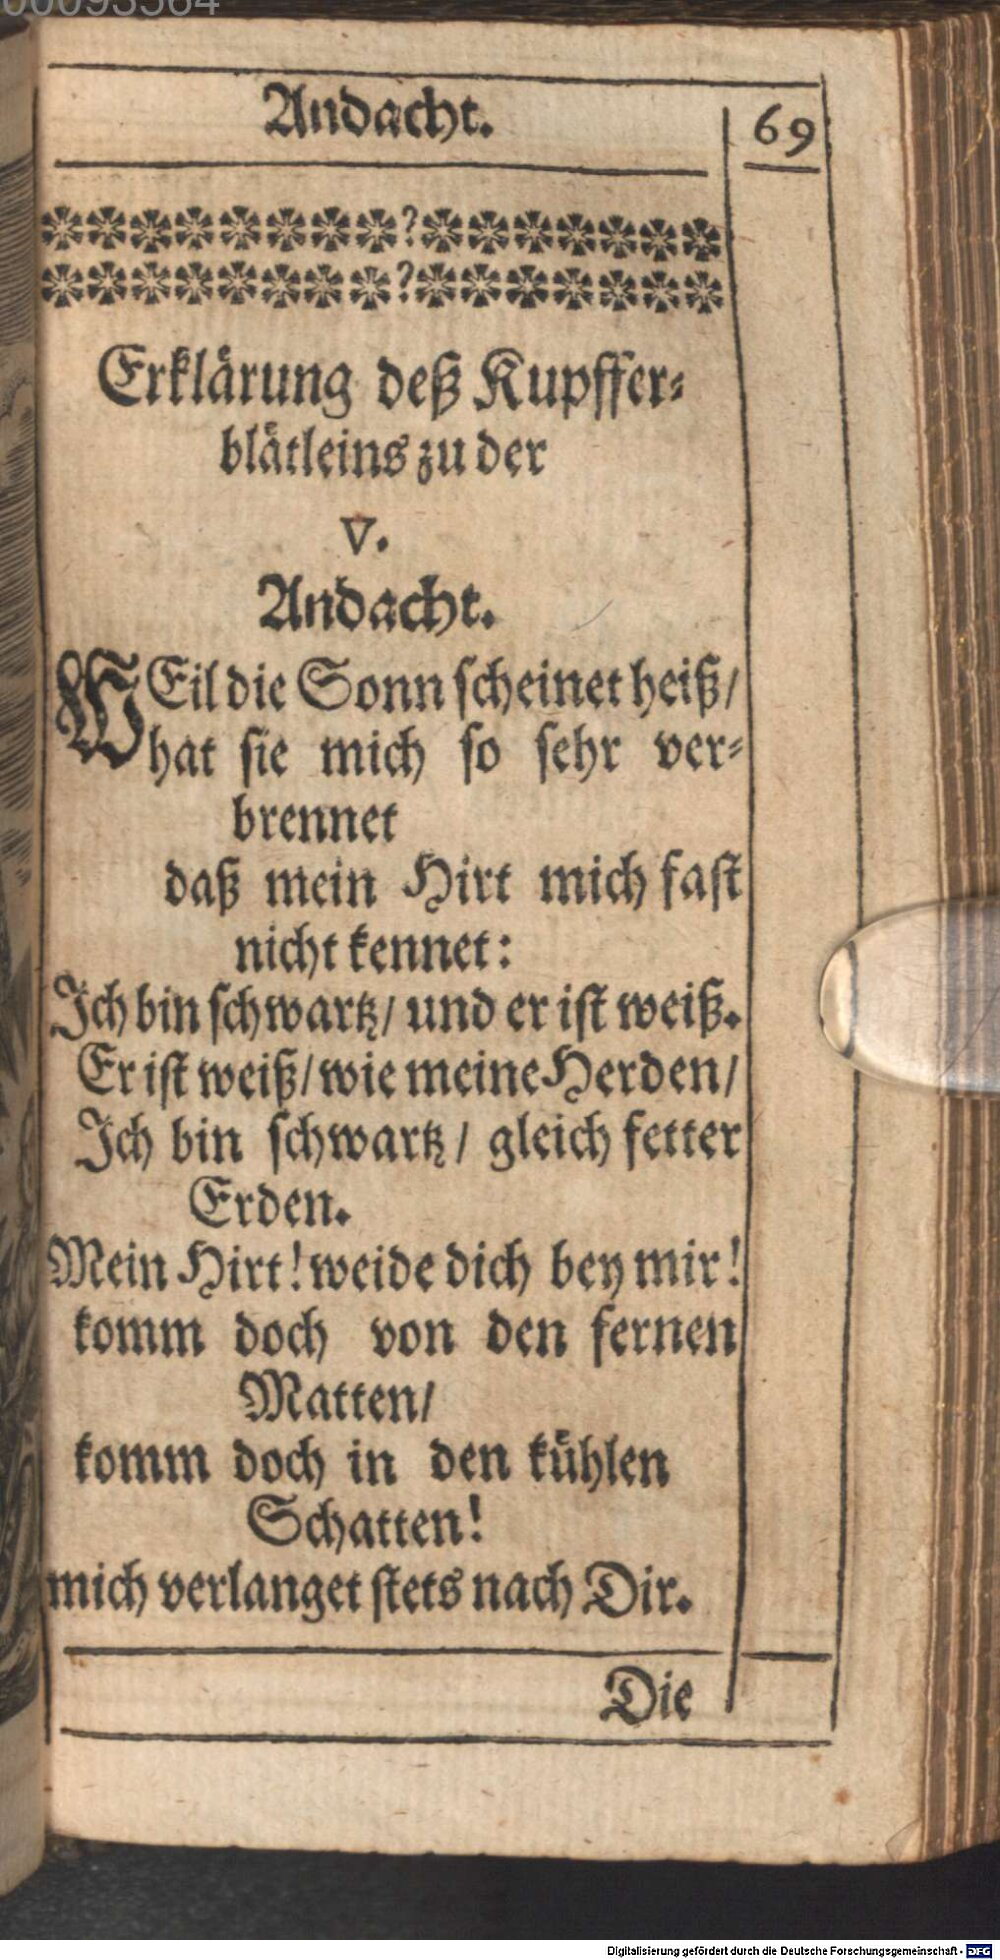 Andacht.
69
Erklärung deß Kupffer-
blätleins zu der
V.
Andacht.
WEil die Sonn scheinet heiß/
hat sie mich so sehr ver-
brennet
daß mein Hirt mich fast
nicht kennet:
Ich bin schwartz/ und er ist weiß.
Er ist weiß/ wie meine Herden/
Ich bin schwartz/ gleich fetter
Erden.
Mein Hirt! weide dich bey mir!
komm doch von den fernen
Matten/
komm doch in den kühlen
Schatten!
mich verlanget stets nach Dir.
Die
Digitalisierung gefördert durch die Deutsche Forschungsgemeinschaft - DFG